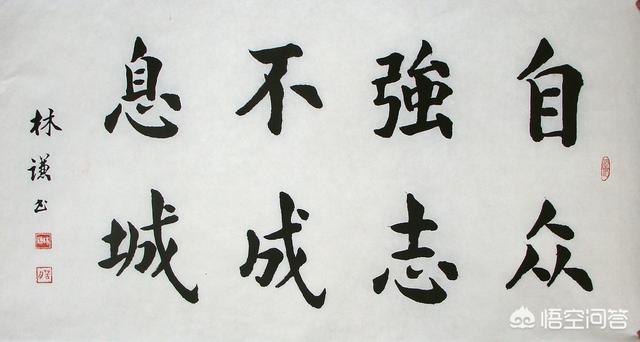 自強不息
众志成城
林谦书
悟空问答